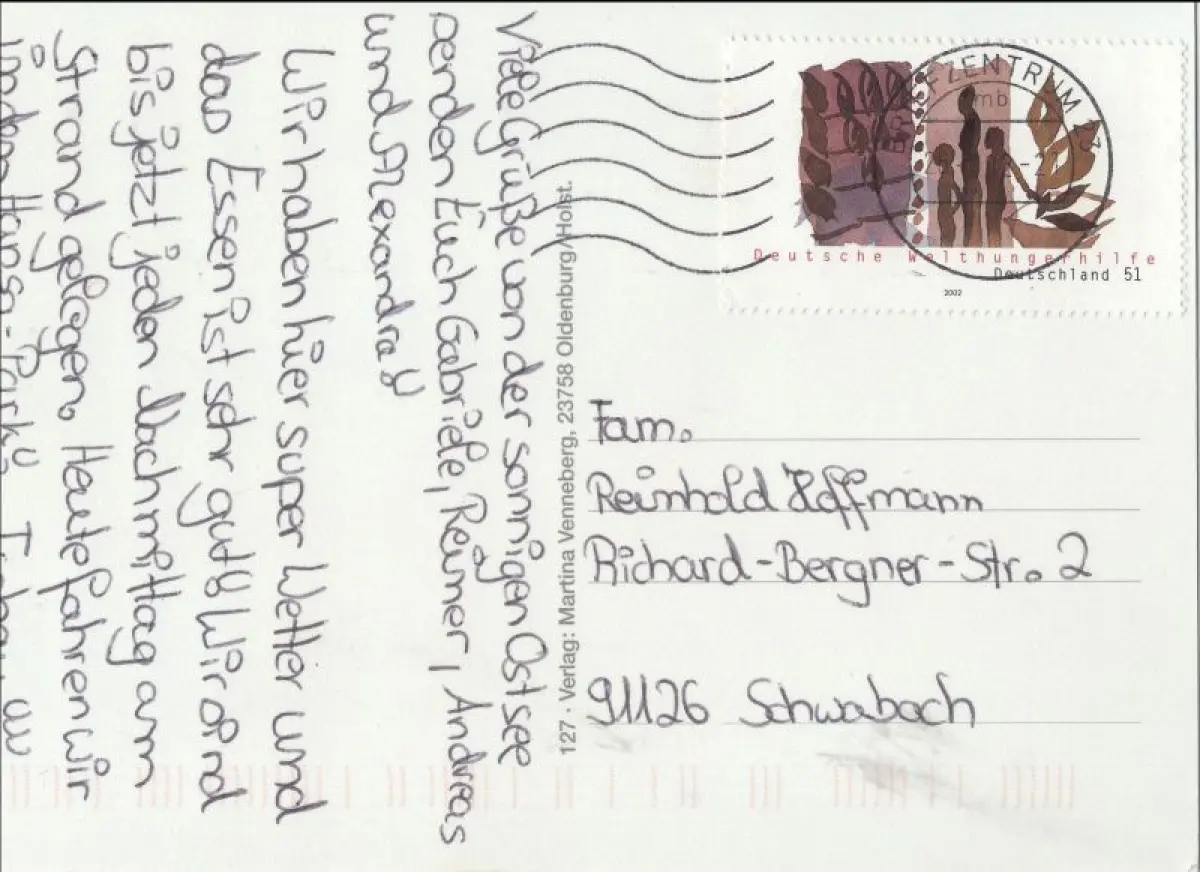 Viele Grüße von der sonnigen Ostsee
senden Euch Gabriele, Reiner, Andreas
und Alexandra!
Wir haben hier super Wetter und
das Essen ist sehr gut! Wir sind
bis jetzt jeden Nachmittag am
Strand gelegen. Heute fahren wir
Hansa-Park
127 · Verlag: Martina Venneberg, 23758 Oldenburg/Holst.
FZENTRUM
mb
Deutsche Welthungerhilfe
Deutschland 51
2002
Fam.
Reinhold Hoffmann
Richard-Bergner-Str. 2
91126 Schwabach